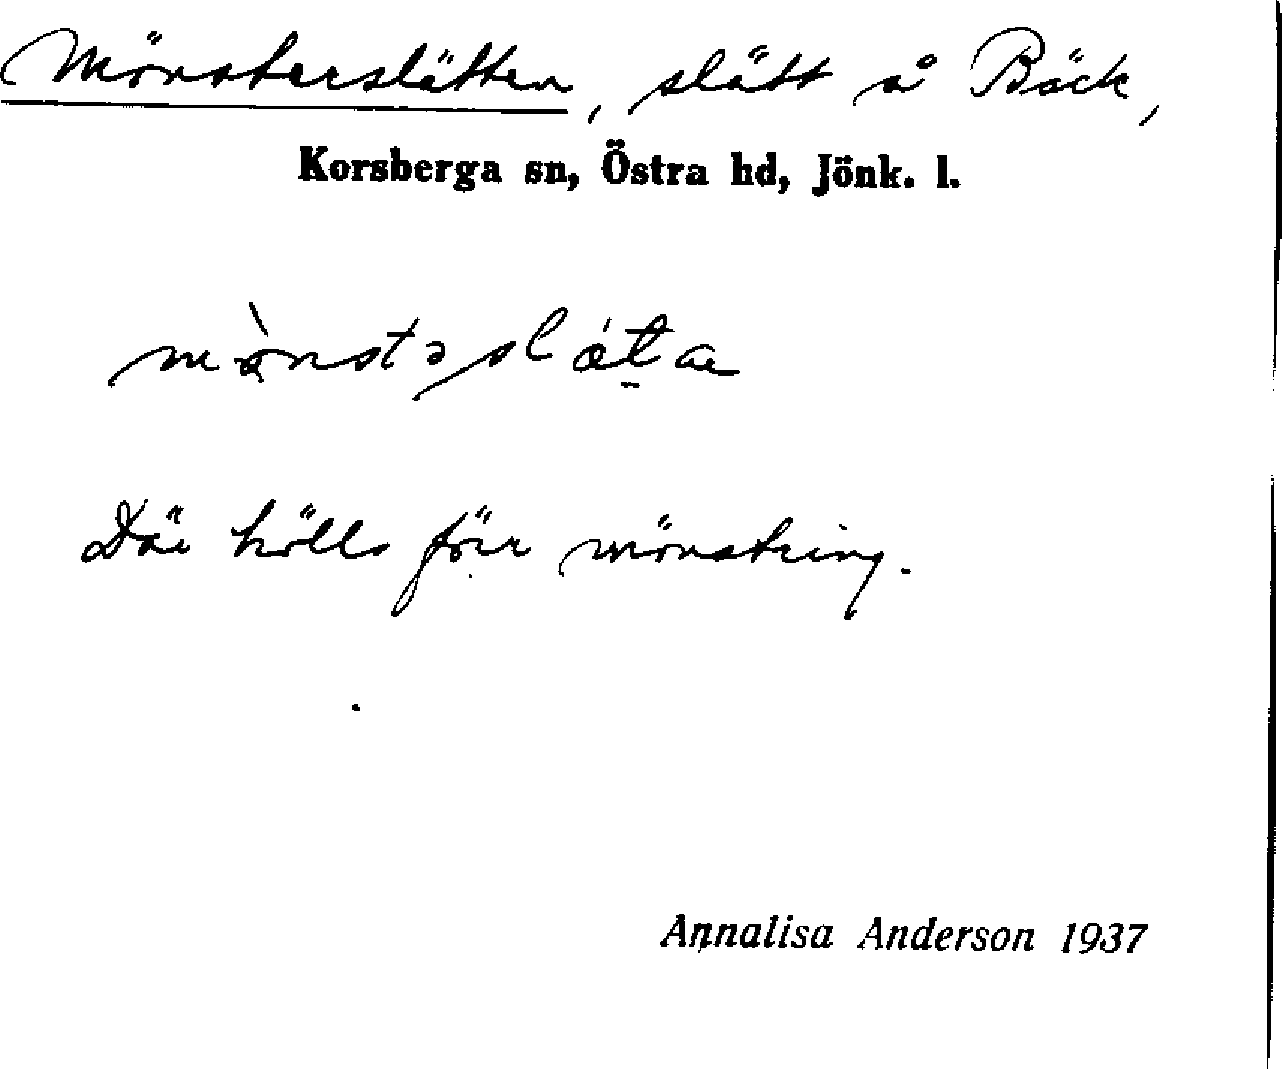 Mönsterslätten, slätt å Bäck,
Korsberga sn, Östra hd, Jönk. l.
Där hölls förr mönstring.
Annalisa Anderson 1937